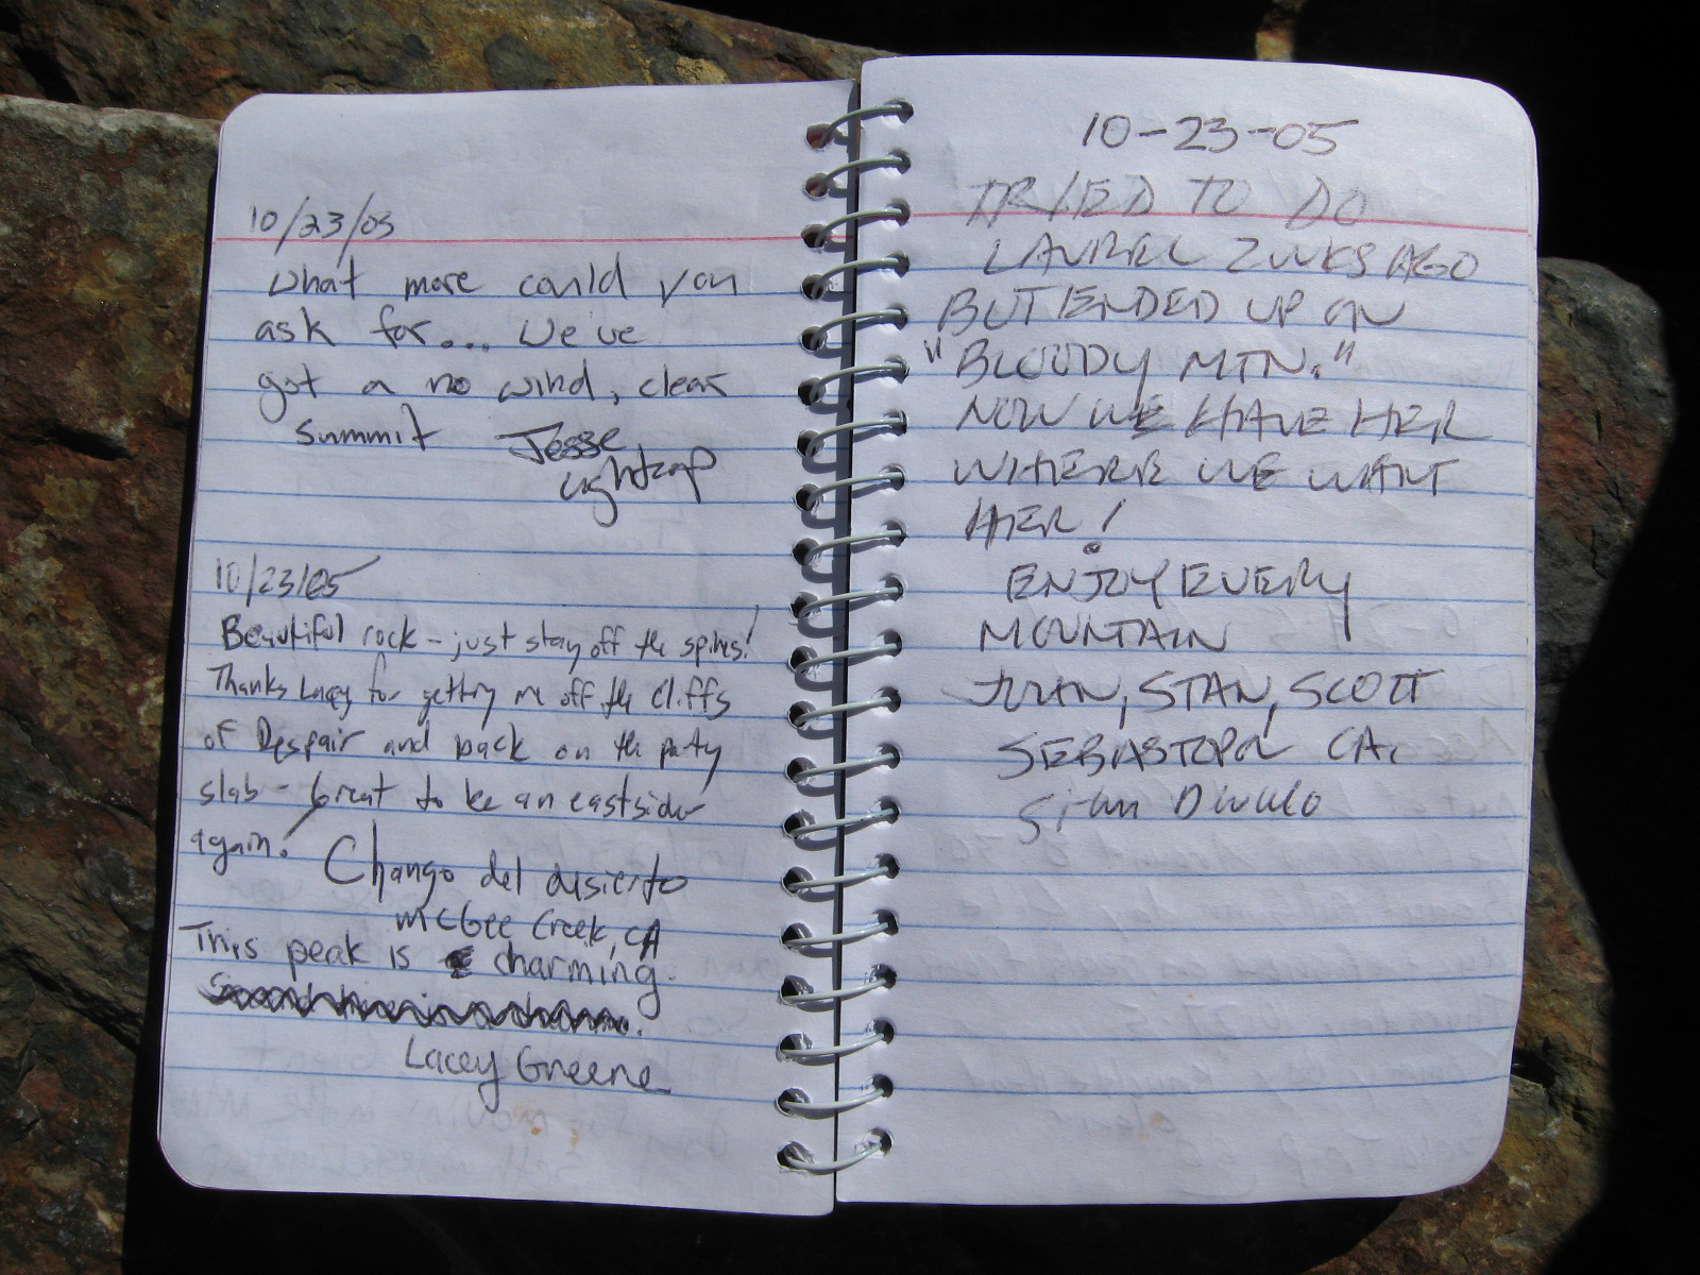 10/23/05
What more could you
ask for... We've
got a no wind, clear
summit Jesse
Lightcap
10/23/05
Beautiful rock - just stay off the spines!
Thanks Lacey for getting me off the Cliffs
of Despair and back on the party
slab - Great to be an eastsider
again!
Chango del desierto
McGee Creek, CA
This peak is charming.
Lacey Greene
10-23-05
TRIED TO DO
LAUREL 2 WKS AGO
BUT ENDED UP ON
"BLOODY MTN."
NOW WE HAVE HER
WHERE WE WANT
HER!
ENJOY EVERY
MOUNTAIN
JOHN, STAN, SCOTT
SEBASTOPOL CA.